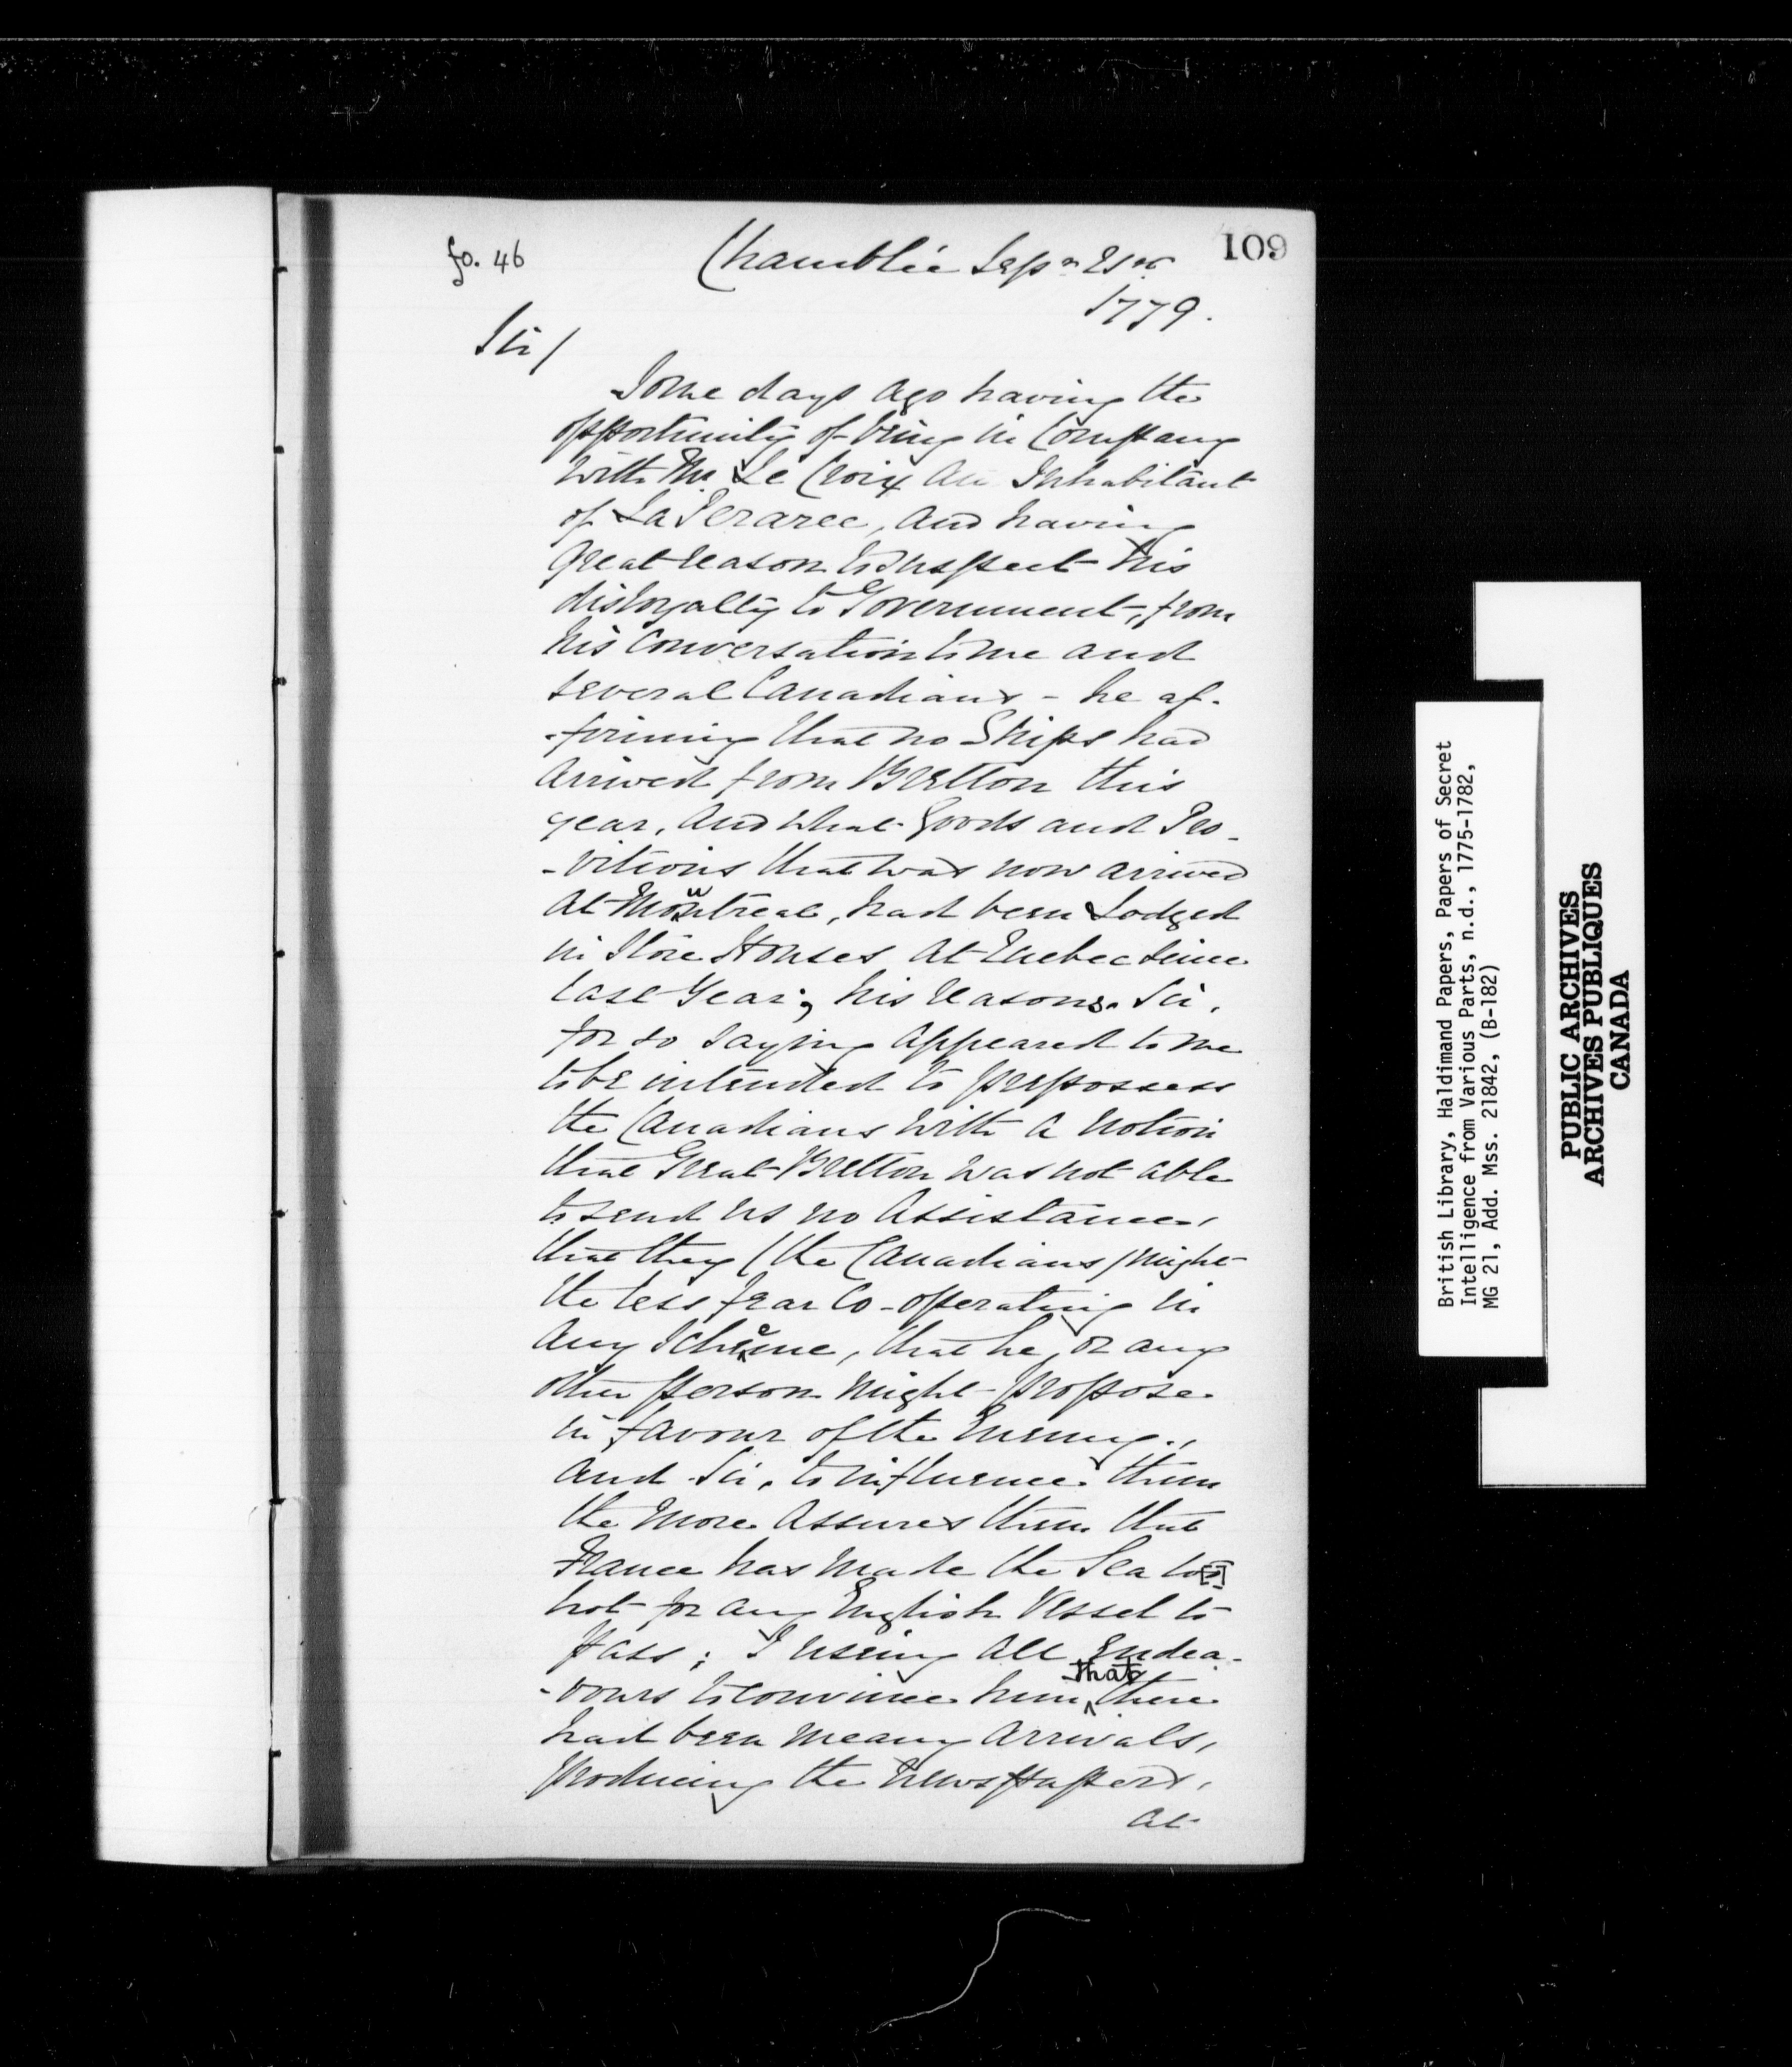 fo. 46
109
Chamblie Sepr 21st
1779.
Sir/
Some days ago having the
opportunity of being in Company
with Mr. Le Croix an Inhabitant
of La Peraree, and having
great reason to suspect his
disloyalty to Government, from
his Conversation to me and
several Canadians - he af-
-firming that no Ships had
arrived from Bretton this
year, and what Goods and Pro-
-vitions that was now arrived
at Montreal, had been Lodged
in Store Houses at Quebec since
last Year; his reasons. Sir,
for so saying appeared to me
to be intended to prepossess
the Canadians with a notion
that Great Bretton was not able
to send us no Assistance,
that they (the Canadians) might
the less fear Co-operating in
any Scheme, that he, or any
other person might propose
in favour of the Enemy.,
and Sir, to influence them
the more assures them that
France has made the Sea too
hot for any English Vessel to
pass; I useing all Endea-
-vours to convince him that there
had been meany arrivals,
produceing the newspapers,
at
British Library, Haldimand Papers, Papers of Secret
Intelligence from Various Parts, n.d., 1775-1782,
MG 21, Add. Mss. 21842, (B-182)
PUBLIC ARCHIVES
ARCHIVES PUBLIQUES
CANADA